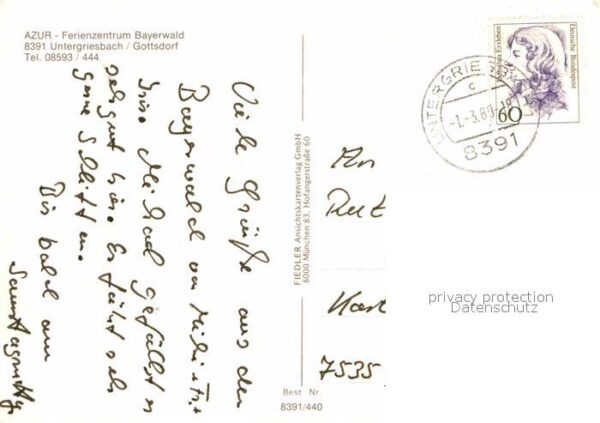 AZUR - Ferienzentrum Bayerwald
8391 Untergriesbach / Gottsdorf
Tel. 08593 / 444
Viele Grüße aus dem
Bayerwald von
Michael gefällt es
sehr gut hier. Er fährt sehr
gerne Schlitten.
Bis bald am
FIEDLER Ansichtskartenverlag GmbH
8000 München 83, Hofangerstraße 60
Best. Nr
8391/440
Deutsche Bundespost
Dorothea Erxleben
60
UNTERGRIE
c
-1.-3.89
8391
An
7535
privacy protection
Datenschutz